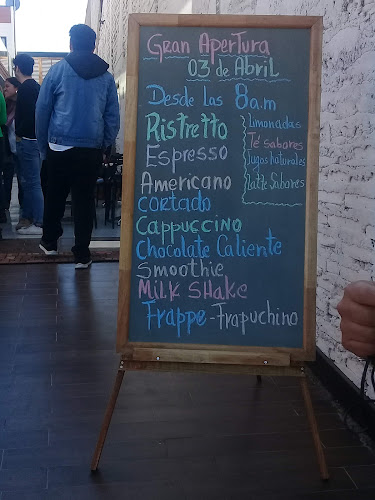 Gran Apertura
03 de Abril
Desde las 8a.m
Ristretto
Espresso
Americano
cortado
Cappuccino
Chocolate Caliente
Smoothie
Milk Shake
Frappe - Frapuchino
Limonadas
Té sabores
Jugos Naturales
Latte Sabores